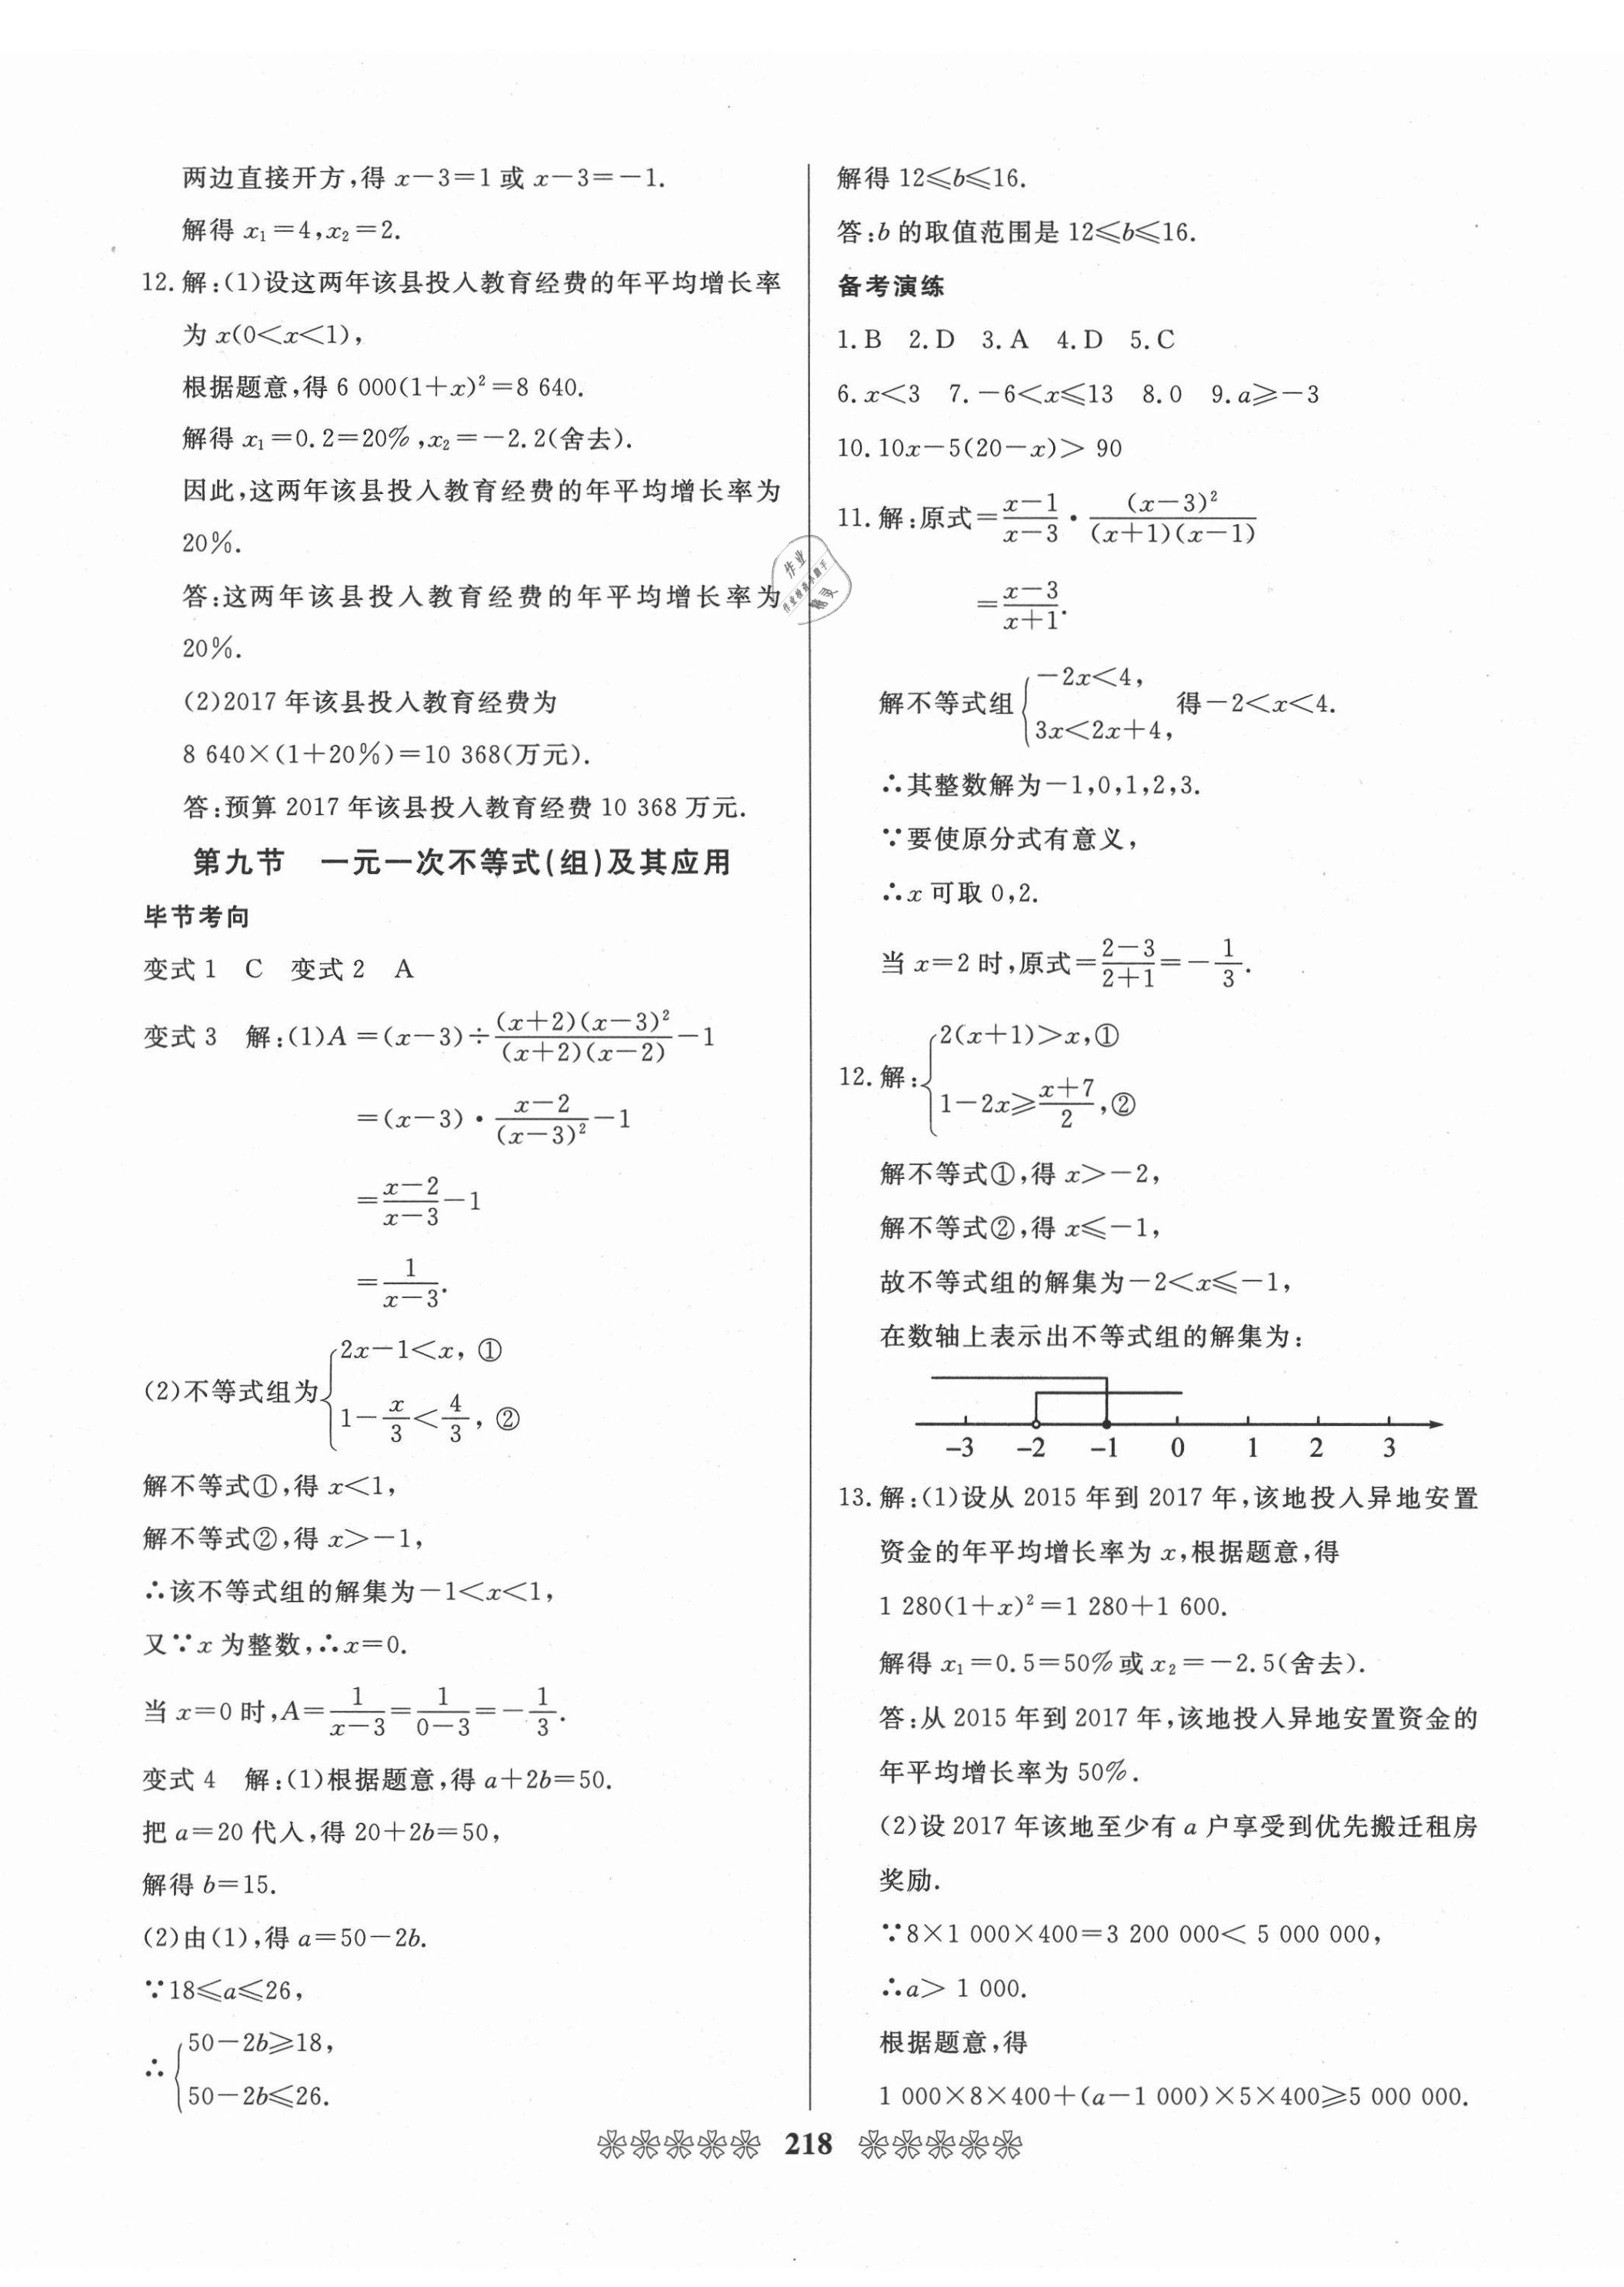 两边直接开方,得 x－3＝1 或 x－3＝－1.
解得 x₁＝4,x₂＝2.
12. 解:(1)设这两年该县投入教育经费的年平均增长率
为 x(0＜x＜1),
根据题意,得 6 000(1＋x)²＝8 640.
解得 x₁＝0.2＝20%,x₂＝－2.2(舍去).
因此,这两年该县投入教育经费的年平均增长率为
20%.
答:这两年该县投入教育经费的年平均增长率为
20%.
(2)2017 年该县投入教育经费为
8 640×(1＋20%)＝10 368(万元).
答:预算 2017 年该县投入教育经费 10 368 万元.
第九节 一元一次不等式(组)及其应用
毕节考向
变式 1 C 变式 2 A
变式 3 解:(1)A＝(x－3)÷(x＋2)(x－3)²/(x＋2)(x－2)－1
＝(x－3)·(x－2)/(x－3)²－1
＝(x－2)/(x－3)－1
＝1/(x－3).
(2)不等式组为{2x－1＜x, ①
1－x/3＜4/3, ②
解不等式①,得 x＜1,
解不等式②,得 x＞－1,
∴该不等式组的解集为－1＜x＜1,
又∵x 为整数,∴x＝0.
当 x＝0 时,A＝1/(x－3)＝1/(0－3)＝－1/3.
变式 4 解:(1)根据题意,得 a＋2b＝50.
把 a＝20 代入,得 20＋2b＝50,
解得 b＝15.
(2)由(1),得 a＝50－2b.
∵18≤a≤26,
∴{50－2b≥18,
50－2b≤26.
解得 12≤b≤16.
答:b 的取值范围是 12≤b≤16.
备考演练
1. B 2. D 3. A 4. D 5. C
6. x＜3 7. －6＜x≤13 8. 0 9. a≥－3
10. 10x－5(20－x)＞ 90
11. 解:原式＝(x－1)/(x－3)·(x－3)²/(x＋1)(x－1)
＝(x－3)/(x＋1).
解不等式组{－2x＜4,
3x＜2x＋4, 得－2＜x＜4.
∴其整数解为－1,0,1,2,3.
∵要使原分式有意义,
∴x 可取 0,2.
当 x＝2 时,原式＝(2－3)/(2＋1)＝－1/3.
12. 解:{2(x＋1)＞x,①
1－2x≥(x＋7)/2,②
解不等式①,得 x＞－2,
解不等式②,得 x≤－1,
故不等式组的解集为－2＜x≤－1,
在数轴上表示出不等式组的解集为:
−3 −2 −1 0 1 2 3
13. 解:(1)设从 2015 年到 2017 年,该地投入异地安置
资金的年平均增长率为 x,根据题意,得
1 280(1＋x)²＝1 280＋1 600.
解得 x₁＝0.5＝50%或 x₂＝－2.5(舍去).
答:从 2015 年到 2017 年,该地投入异地安置资金的
年平均增长率为 50%.
(2)设 2017 年该地至少有 a 户享受到优先搬迁租房
奖励.
∵8×1 000×400＝3 200 000＜ 5 000 000,
∴a＞ 1 000.
根据题意,得
1 000×8×400＋(a－1 000)×5×400≥5 000 000.
218